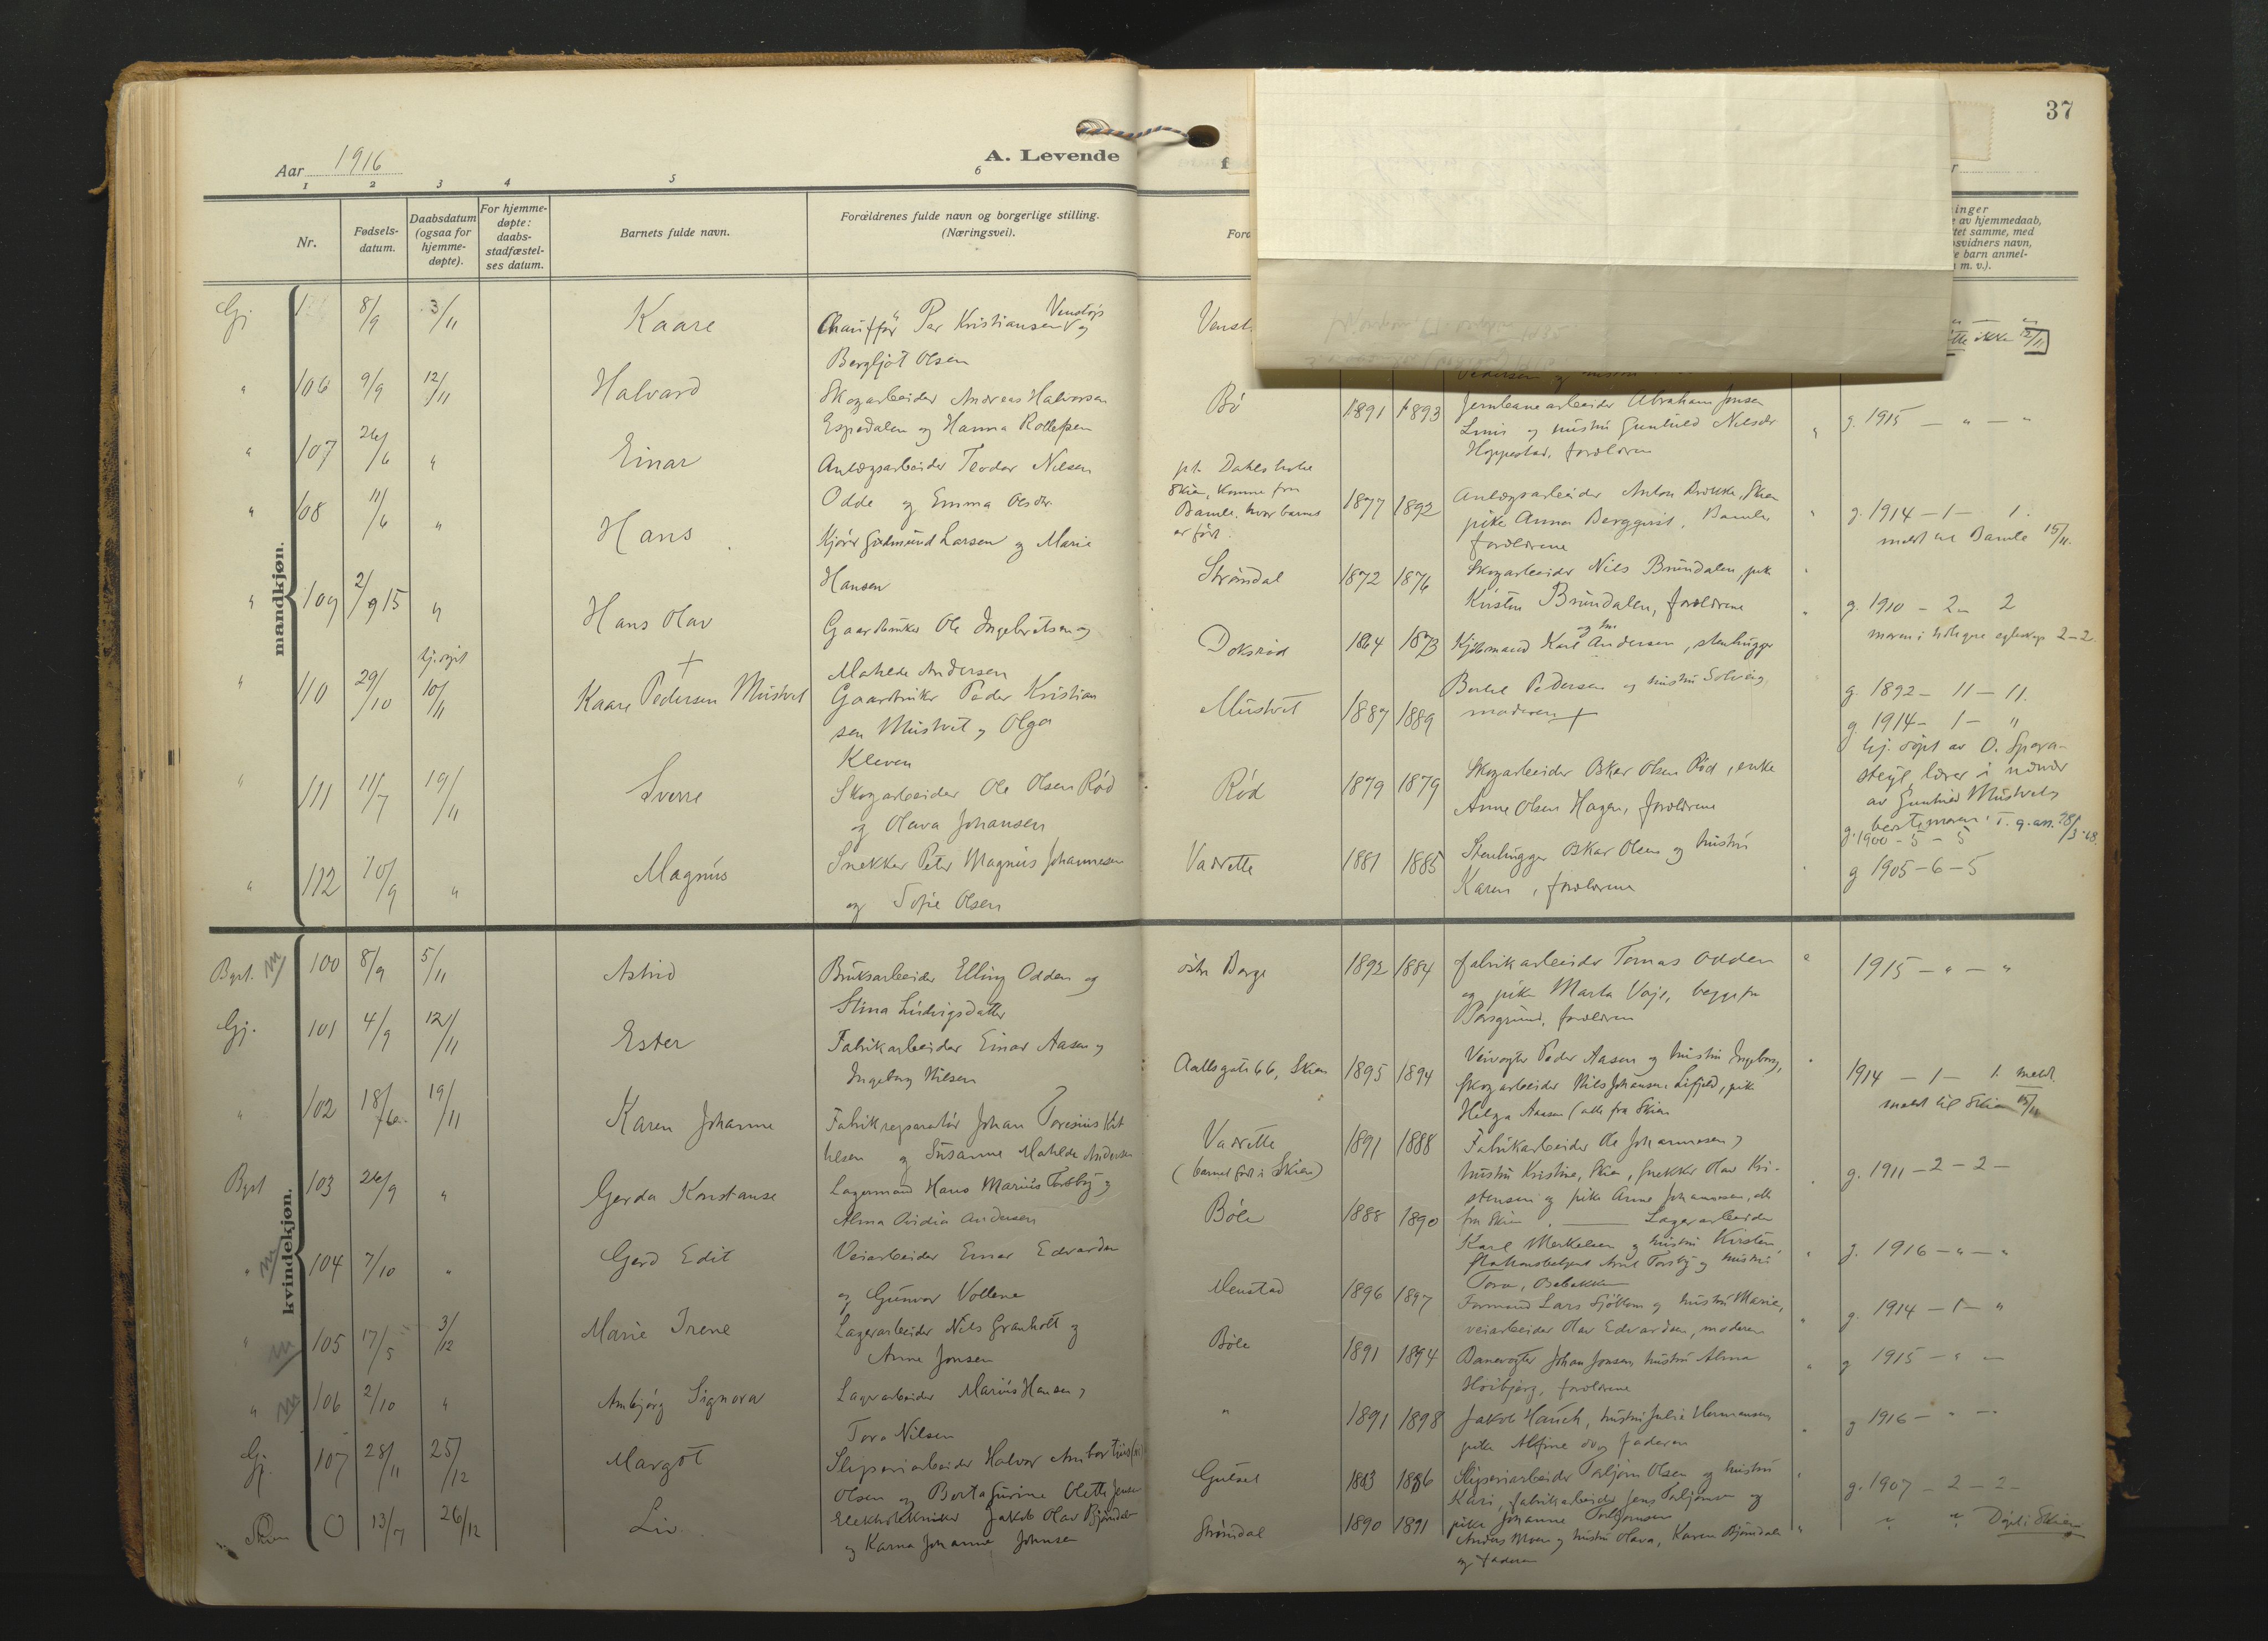 37
Aar 1916
A. Levende
f
1 2 3 4 5 6
Nr.
Fødsels-
datum.
Daabsdatum
(ogsaa for
hjemme-
døpte).
For hjemme-
døpte:
daabs-
stadfæstel-
ses datum.
Barnets fulde navn.
Forældrenes fulde navn og borgerlige stilling.
(Næringsvei).
Foræ
inger
av hjemmedaab,
tet samme, med
svidners navn,
e barn anmel-
m. v.).
mandkjøn.
Gj 8/9 3/11 Kaare Chauffør Per Kristiansen Venstøp og
Bergljot Olsen
Venst
ikke 12/11
" 106 9/9 12/11 Halvard Skogarbeider Andreas Halvorsen
Espedalen og Hanna Rollefsen
Bø 1891 1893 Jernbanearbeider Abraham Jonsen
og hustru Gunhild Nilsdr
Hoppestad, forældrene
g. 1915 — " — "
" 107 26/6 " Einar Anlægsarbeider Teodor Nilsen
Odde og Emma Olsdtr
pt. Dahls
Skien, komne fra
Bamle, hvor barnet
er født.
1877 1892 Anlægsarbeider Anton Skien
pike Anna Bergquist, Bamle
forældrene
g. 1914 — 1 — 1.
meldt til Bamle 15/11.
" 108 11/6 " Hans Kjører Gudmund Larsen og Marie
Hansen
Strømdal 1872 1876 Skogarbeider Nils Brundalen, pike
Kirstin Brundalen, forældrene
g. 1910 — 2 — 2
" 109 2/9 15 " Hans Olav Gaardbruker Ole Ingebretsen og
Matilde Andersen
Doksrød 1864 1873 Kjøbmand Karl Andersen og fru, stenhugger
Bertel Pedersen og hustru Solveig,
moderen +
g. 1892 — 11 — 11.
hj. døpt
" 110 29/10 10/11 + Kaare Pedersen Mustvet Gaardbruker Peder Kristian
sen Mustvet og Olga
Kleven
Mustvet 1887 1889
g. 1914 — 1 — "
hj. døpt av O. Spora-
steyl, lærer i nærvær
av Gunhild Mustvet,
bestemoren.
" 111 11/7 19/11 Sverre Skogarbeider Ole Olsen Rød
og Olava Johansen
Rød 1879 1879 Skogarbeider Oskar Olsen Rød, enke
Anne Olsen Hagen, forældrene
g. 1900 — 5 — 5
" 112 10/9 " Magnus Snekker Peter Magnus Johannesen
og Sofie Olsen
Vadrette 1881 1885 Stenhugger Oskar Olsen og hustru
Karen, forældrene
g 1905 — 6 — 5
kvindekjøn.
Bgst. m 100 8/9 5/11 Astrid Bruksarbeider Elling Odden og
Stina Ludvigsdatter
østre Borge 1892 1884 fabrikarbeider Tomas Odden
og pike Marta Voje, begge fra
Porsgrund, forældrene
1915 — " — "
Gj. 101 4/9 12/11 Ester Fabrikarbeider Einar Aasen og
Ingeborg Nilsen
Aallsgate 66, Skien 1895 1894 Veivogter Peder Aasen og hustru Ingeborg,
skogarbeider Nils Johansen Lifjeld, pike
Helga Aasen (alle fra Skien
1914 — 1 — 1. meldt
meldt til Skien 15/11
" 102 18/6 19/11 Karen Johanne Fabrikreparatør Johan Toresius Ket
tilsen og Susanne Matilde Andersen
Vadrette
(barnet født i Skien)
1891 1888 Fabrikarbeider Ole Johannesen og
hustru Kristine, Skien, snekker Olav Kri-
stensen og pike Anne Johannesen, alle
fra Skien.
g. 1911 — 2 — 2 —
Bgst 103 26/9 " Gerda Konstanse Lagermand Hans Marius Torsby og
Alma Ovidia Andersen
Bøle 1888 1890 Lagerarbeider
Karl Merkelsen og hustru Kirsten,
stationsbetjent Arnt Torsby og hustru
Tora, Osebakken
g. 1916 — " — "
" m 104 7/10 " Gerd Edit Veiarbeider Einar Edvardsen
og Gunvor Vollene
Menstad 1896 1897 Formand Lars Sjöblom og hustru Marie,
veiarbeider Olav Edvardsen, moderen
g. 1914 — 1 — "
" m 105 17/5 3/12 Marie Irene Lagerarbeider Nils Granholt og
Anne Jonsen
Bøle 1891 1894 Banevogter Johan Jonsen, hustru Alma
Høibjerg, forældrene
g 1915 — " —
" m 106 2/10 " Ambjørg Signora Lagerarbeider Marius Hansen og
Tora Nilsen
" 1891 1898 Jakob Hauch, hustru Julie Hermansen,
pike Alfine og faderen
g 1916 — " —
Gj. 107 28/11 25/12 Margot Sliperiarbeider Halvor Ambortius
Olsen og Berta Gurine Olette Jensen
Gulset 1883 1886 Sliperiarbeider Torbjørn Olsen og hustru
Kari, fabrikarbeider Jens Torbjørnsen og
pike Johanne Torbjørnsen
g. 1907 — 2 — 2 —
" Skien O 13/7 26/12 Liv Elektrotekniker Jakob Olav Bjørndalen
og Karna Johanne Johnsen
Strømdal 1890 1891 Anders Moen og hustru Olava, Karen Bjørndalen
og faderen
" " Døpt i Skien